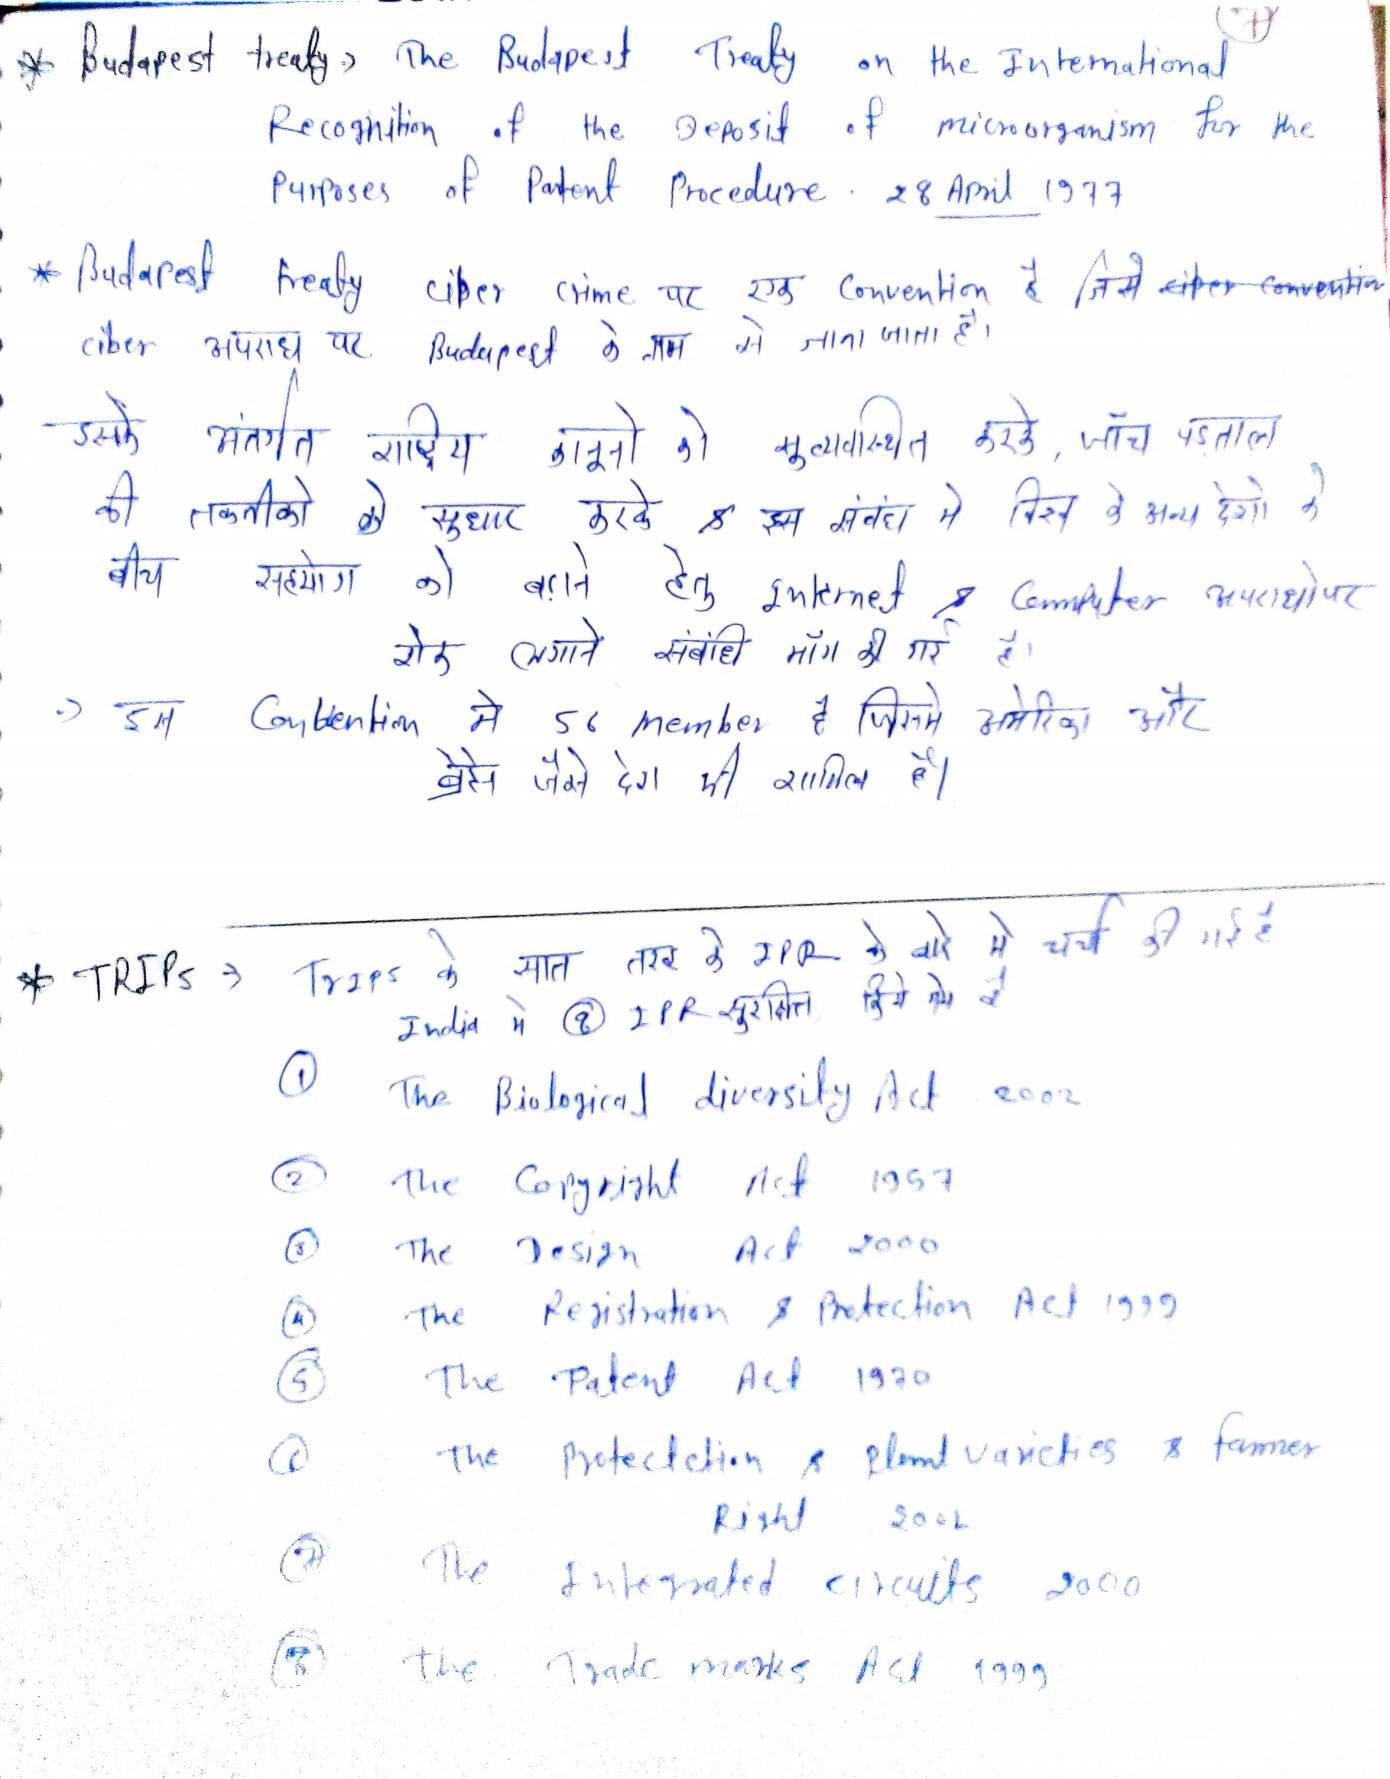 7
* Budapest treaty → The Budapest Treaty on the International
Recognition of the Deposit of microorganism for the
Purposes of Patent Procedure. 28 April 1977
* Budapest treaty ciber crime पर एक Convention है जिसे ciber convention
ciber अपराध पर Budapest के नाम से जाना जाता है।
इसके अंतर्गत राष्ट्रिय कानूनो को सुव्यवस्थित करके, जाँच पड़ताल
की तकनीको को सुधार करके & इस संबंध मे विश्व के अन्य देशो के
बीच सहयोग को बढ़ाने हेतु Internet & Computer अपराधो पर
रोक लगाने संबंधि माँग की गई है।
→ इस Conbtention मे 56 member है जिसमे अमेरिका और
ब्रेटेन जैसे देश भी शामिल है।
* TRIPs → Trips के सात तरह के IPR के बारे मे चर्चा की गई है
India मे 8 IPR सुरक्षित किये गये है
① The Biological diversity Act 2002
② The Copyright Act 1957
③ The Design Act 2000
④ The Registration & Protection Act 1999
⑤ The Patent Act 1970
⑥ The Protectction & Plant varieties & farmer
Right 2001
⑦ The Integrated circuits 2000
⑧ The Trade marks Act 1999